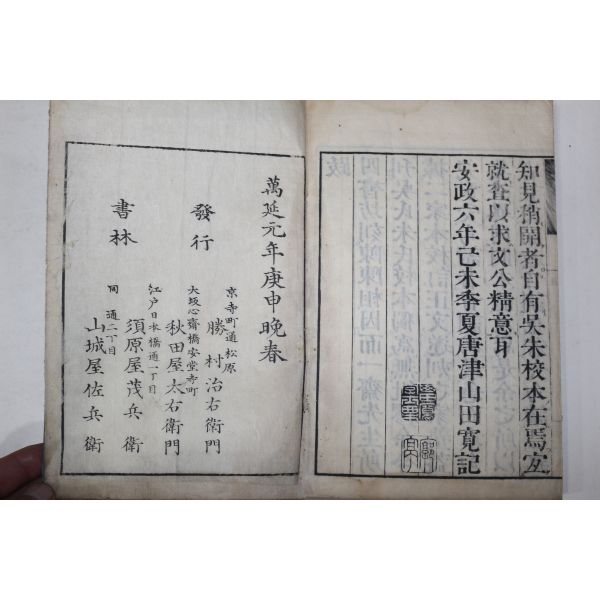 知見稍開者自有吳朱校本在焉宜
就查以求文公精意耳
安政六年己未季夏唐津山田寬記
萬延元年庚申晚春
發行
書林
京寺町通松原
勝村治右衛門
大坂心齋橋安堂寺町
秋田屋太右衛門
江戶日本橋通一丁目
須原屋茂兵衛
同通二丁目
山城屋佐兵衛